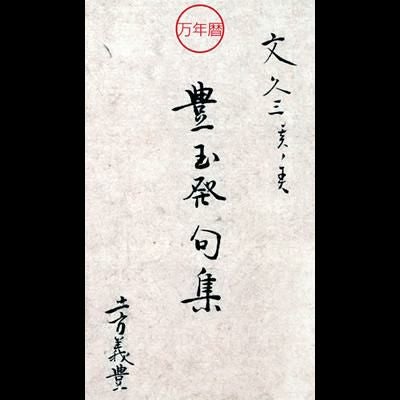 万年暦
文久三亥ノ春
豊玉発句集
土方義豊